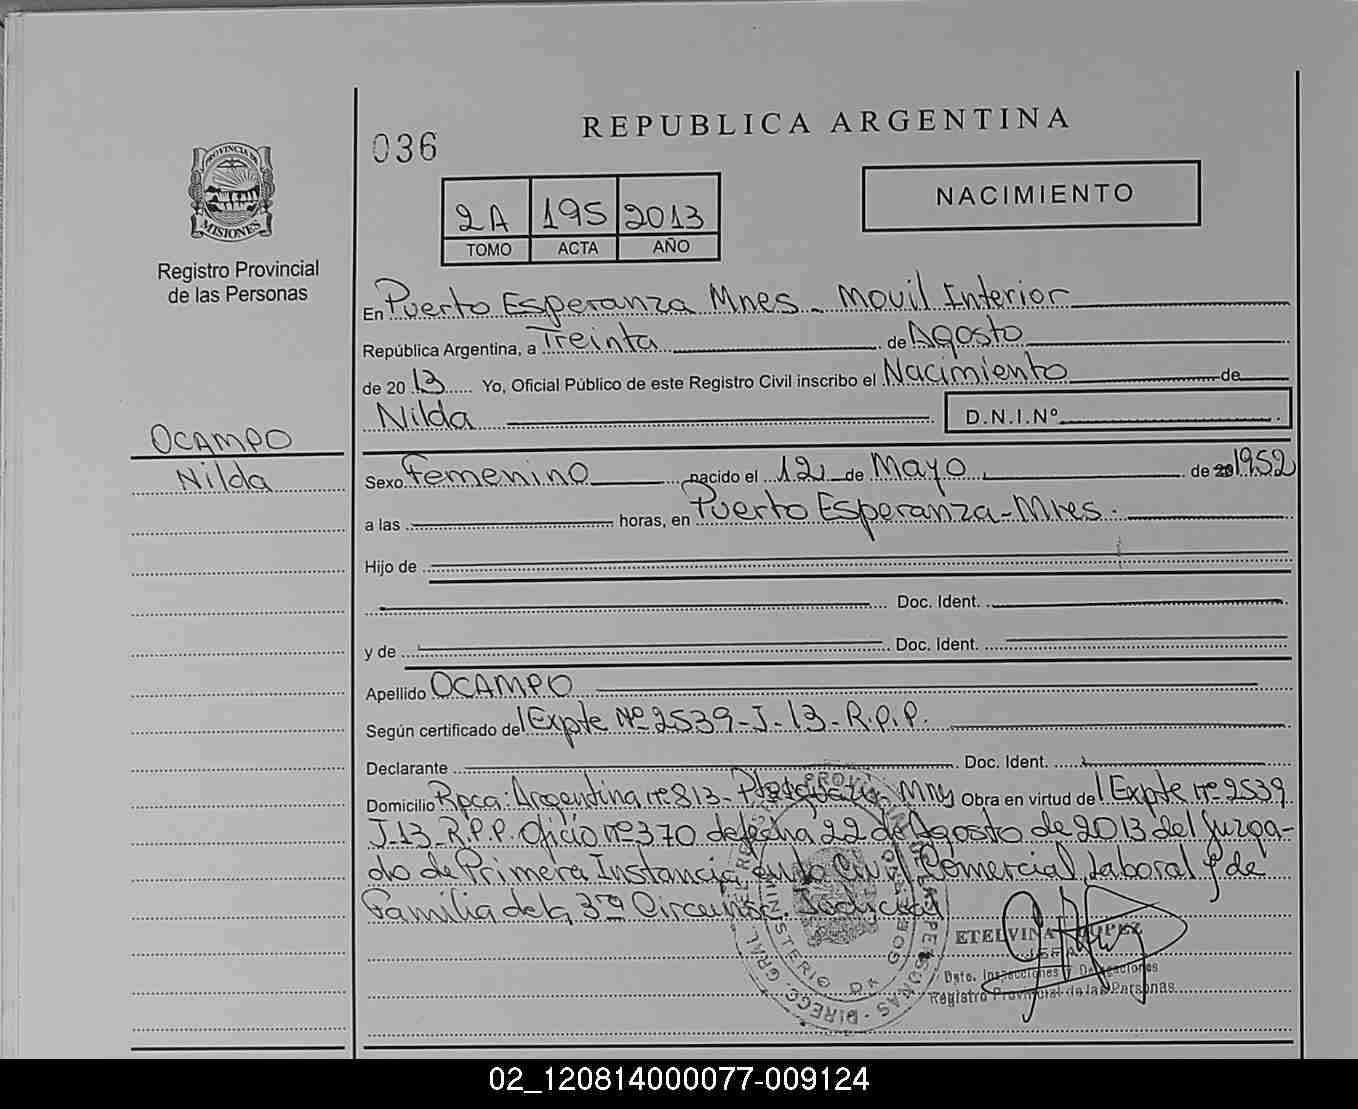 REPUBLICA ARGENTINA
036
NACIMIENTO
2A 195 2013
TOMO ACTA AÑO
PROVINCIA DE
MISIONES
Registro Provincial
de las Personas
En Puerto Esperanza Mnes - Movil Interior
República Argentina, a Treinta de Agosto
de 2013 Yo, Oficial Público de este Registro Civil inscribo el Nacimiento de
Nilda D.N.I.Nº
OCAMPO
Nilda
Sexo Femenino nacido el 12 de Mayo de 20 1952
a las horas, en Puerto Esperanza - Mnes.
Hijo de
Doc. Ident.
y de Doc. Ident.
Apellido OCAMPO
Según certificado de Expte Nº 2539-J-13-R.P.P.
Declarante Doc. Ident.
Domicilio Rpca. Argentina nº 813- Obra en virtud de Expte nº 2539
J-13-R.P.P. Oficio nº 370 de fecha 22 de Agosto de 2013 del Juzga-
do de Primera Instancia en lo Civil, Comercial, Laboral y de
Familia de la 3ra Circunsc. Judicial
ETELVINA LOPEZ
Dpto. Inspecciones y Delegaciones
Registro Provincial de las Personas
02_120814000077-009124